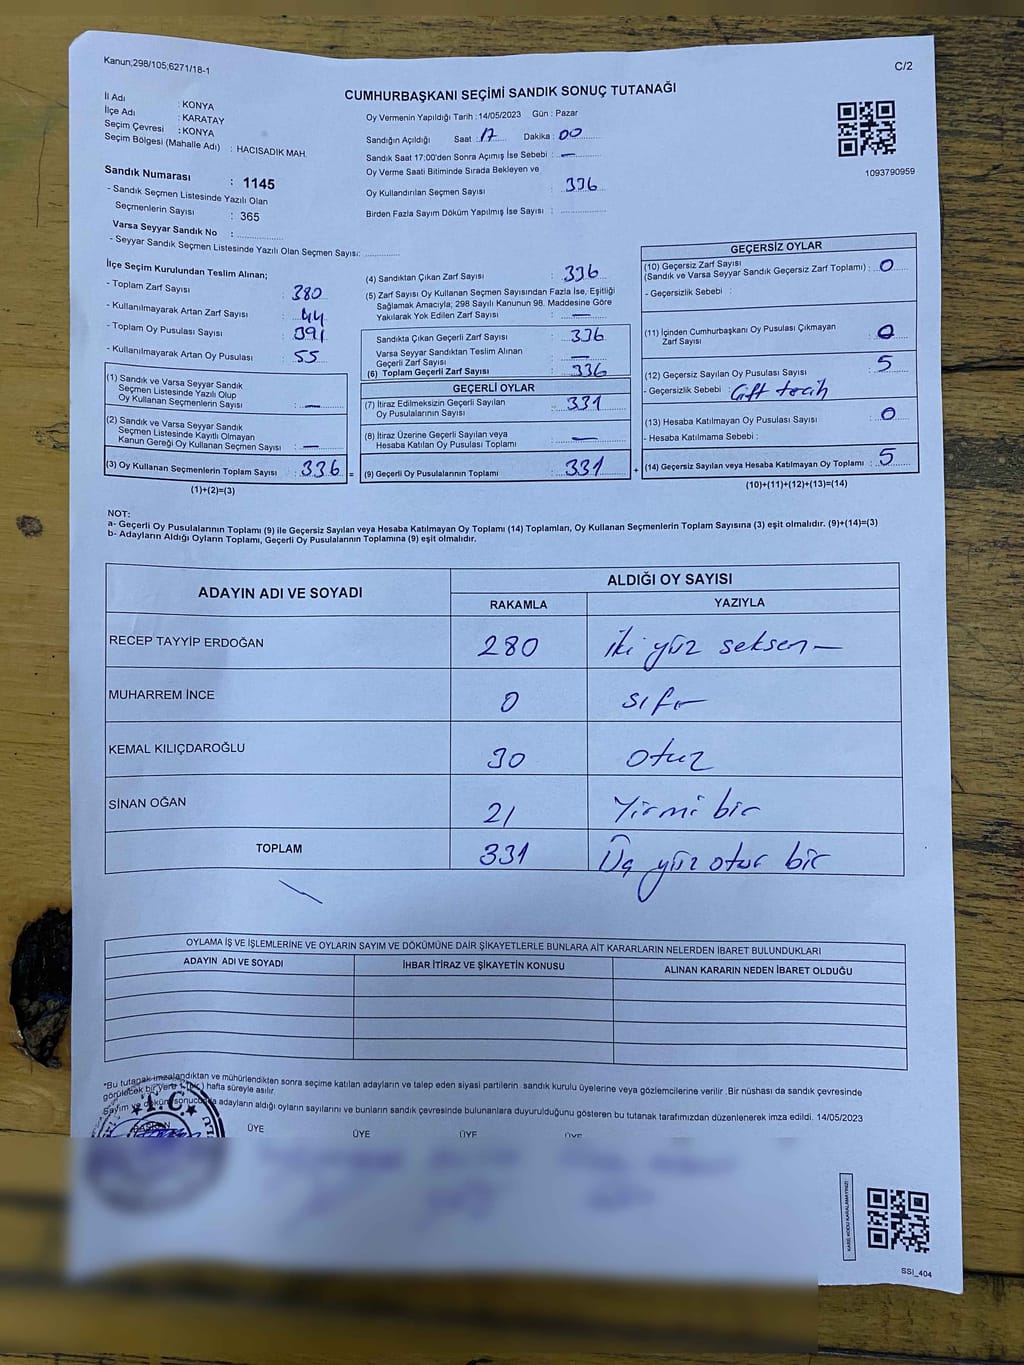 Kanun;298/105;6271/18-1
C/2
CUMHURBAŞKANI SEÇİMİ SANDIK SONUÇ TUTANAĞI
İl Adı : KONYA
İlçe Adı : KARATAY
Seçim Çevresi : KONYA
Seçim Bölgesi (Mahalle Adı) : HACISADIK MAH.
Sandık Numarası : 1145
- Sandık Seçmen Listesinde Yazılı Olan
Seçmenlerin Sayısı : 365
Varsa Seyyar Sandık No :
- Seyyar Sandık Seçmen Listesinde Yazılı Olan Seçmen Sayısı:
Oy Vermenin Yapıldığı Tarih :14/05/2023 Gün : Pazar
Sandığın Açıldığı Saat : 17 Dakika : 00
Sandık Saat 17:00'den Sonra Açımış İse Sebebi : —
Oy Verme Saati Bitiminde Sırada Bekleyen ve
Oy Kullandırılan Seçmen Sayısı : 336
Birden Fazla Sayım Döküm Yapılmış İse Sayısı :
1093790959
İlçe Seçim Kurulundan Teslim Alınan;
- Toplam Zarf Sayısı : 380
- Kullanılmayarak Artan Zarf Sayısı : 44
- Toplam Oy Pusulası Sayısı : 391
- Kullanılmayarak Artan Oy Pusulası : 55
(1) Sandık ve Varsa Seyyar Sandık
Seçmen Listesinde Yazılı Olup
Oy Kullanan Seçmenlerin Sayısı : —
(2) Sandık ve Varsa Seyyar Sandık
Seçmen Listesinde Kayıtlı Olmayan
Kanun Gereği Oy Kullanan Seçmen Sayısı : —
(3) Oy Kullanan Seçmenlerin Toplam Sayısı : 336 =
(1)+(2)=(3)
(4) Sandıktan Çıkan Zarf Sayısı : 336
(5) Zarf Sayısı Oy Kullanan Seçmen Sayısından Fazla İse, Eşitliği
Sağlamak Amacıyla; 298 Sayılı Kanunun 98. Maddesine Göre
Yakılarak Yok Edilen Zarf Sayısı : —
Sandıkta Çıkan Geçerli Zarf Sayısı : 336
Varsa Seyyar Sandıktan Teslim Alınan
Geçerli Zarf Sayısı : —
(6) Toplam Geçerli Zarf Sayısı : 336
GEÇERLİ OYLAR
(7) İtiraz Edilmeksizin Geçerli Sayılan
Oy Pusulalarının Sayısı : 331
(8) İtiraz Üzerine Geçerli Sayılan veya
Hesaba Katılan Oy Pusulası Toplamı : —
(9) Geçerli Oy Pusulalarının Toplamı : 331 +
GEÇERSİZ OYLAR
(10) Geçersiz Zarf Sayısı
(Sandık ve Varsa Seyyar Sandık Geçersiz Zarf Toplamı) : 0
- Geçersizlik Sebebi :
(11) İçinden Cumhurbaşkanı Oy Pusulası Çıkmayan
Zarf Sayısı : 0
(12) Geçersiz Sayılan Oy Pusulası Sayısı : 5
- Geçersizlik Sebebi : Çift tercih
(13) Hesaba Katılmayan Oy Pusulası Sayısı : 0
- Hesaba Katılmama Sebebi :
(14) Geçersiz Sayılan veya Hesaba Katılmayan Oy Toplamı : 5
(10)+(11)+(12)+(13)=(14)
NOT:
a- Geçerli Oy Pusulalarının Toplamı (9) ile Geçersiz Sayılan veya Hesaba Katılmayan Oy Toplamı (14) Toplamları, Oy Kullanan Seçmenlerin Toplam Sayısına (3) eşit olmalıdır. (9)+(14)=(3)
b- Adayların Aldığı Oyların Toplamı, Geçerli Oy Pusulalarının Toplamına (9) eşit olmalıdır.
ADAYIN ADI VE SOYADI
ALDIĞI OY SAYISI
RAKAMLA YAZIYLA
RECEP TAYYİP ERDOĞAN 280 İki yüz seksen
MUHARREM İNCE 0 sıfır
KEMAL KILIÇDAROĞLU 30 otuz
SİNAN OĞAN 21 Yirmi bir
TOPLAM 331 Üç yüz otuz bir
OYLAMA İŞ VE İŞLEMLERİNE VE OYLARIN SAYIM VE DÖKÜMÜNE DAİR ŞİKAYETLERLE BUNLARA AİT KARARLARIN NELERDEN İBARET BULUNDUKLARI
ADAYIN ADI VE SOYADI İHBAR İTİRAZ VE ŞİKAYETİN KONUSU ALINAN KARARIN NEDEN İBARET OLDUĞU
*Bu tutanak imzalandıktan ve mühürlendikten sonra seçime katılan adayların ve talep eden siyasi partilerin sandık kurulu üyelerine veya gözlemcilerine verilir. Bir nüshası da sandık çevresinde
görülecek bir yere 1 (bir) hafta süreyle asılır.
Sayım ve döküm sonucunda adayların aldığı oyların sayılarını ve bunların sandık çevresinde bulunanlara duyurulduğunu gösteren bu tutanak tarafımızdan düzenlenerek imza edildi. 14/05/2023
T.C.
BAŞKAN ÜYE ÜYE ÜYE ÜYE
KARE KODU KARALAMAYINIZ!
SSI_404